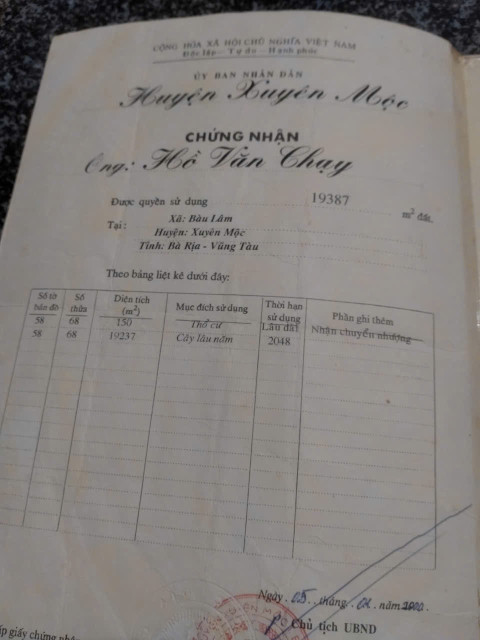 CỘNG HÒA XÃ HỘI CHỦ NGHĨA VIỆT NAM
Độc lập - Tự do - Hạnh phúc
ỦY BAN NHÂN DÂN
Huyện Xuyên Mộc
CHỨNG NHẬN
Ông: Hồ Văn Chạy
Được quyền sử dụng 19387 m² đất.
Tại : Xã: Bàu Lâm
Huyện: Xuyên Mộc
Tỉnh: Bà Rịa - Vũng Tàu
Theo bảng liệt kê dưới đây:
Số tờ bản đồ Số thửa Diện tích (m²) Mục đích sử dụng Thời hạn sử dụng Phần ghi thêm
58 68 150 Thổ cư Lâu dài Nhận chuyển nhượng
58 68 19237 Cây lâu năm 2048
Ngày 05 tháng 02 năm
Chủ tịch UBND
ấp giấy chứng nhận